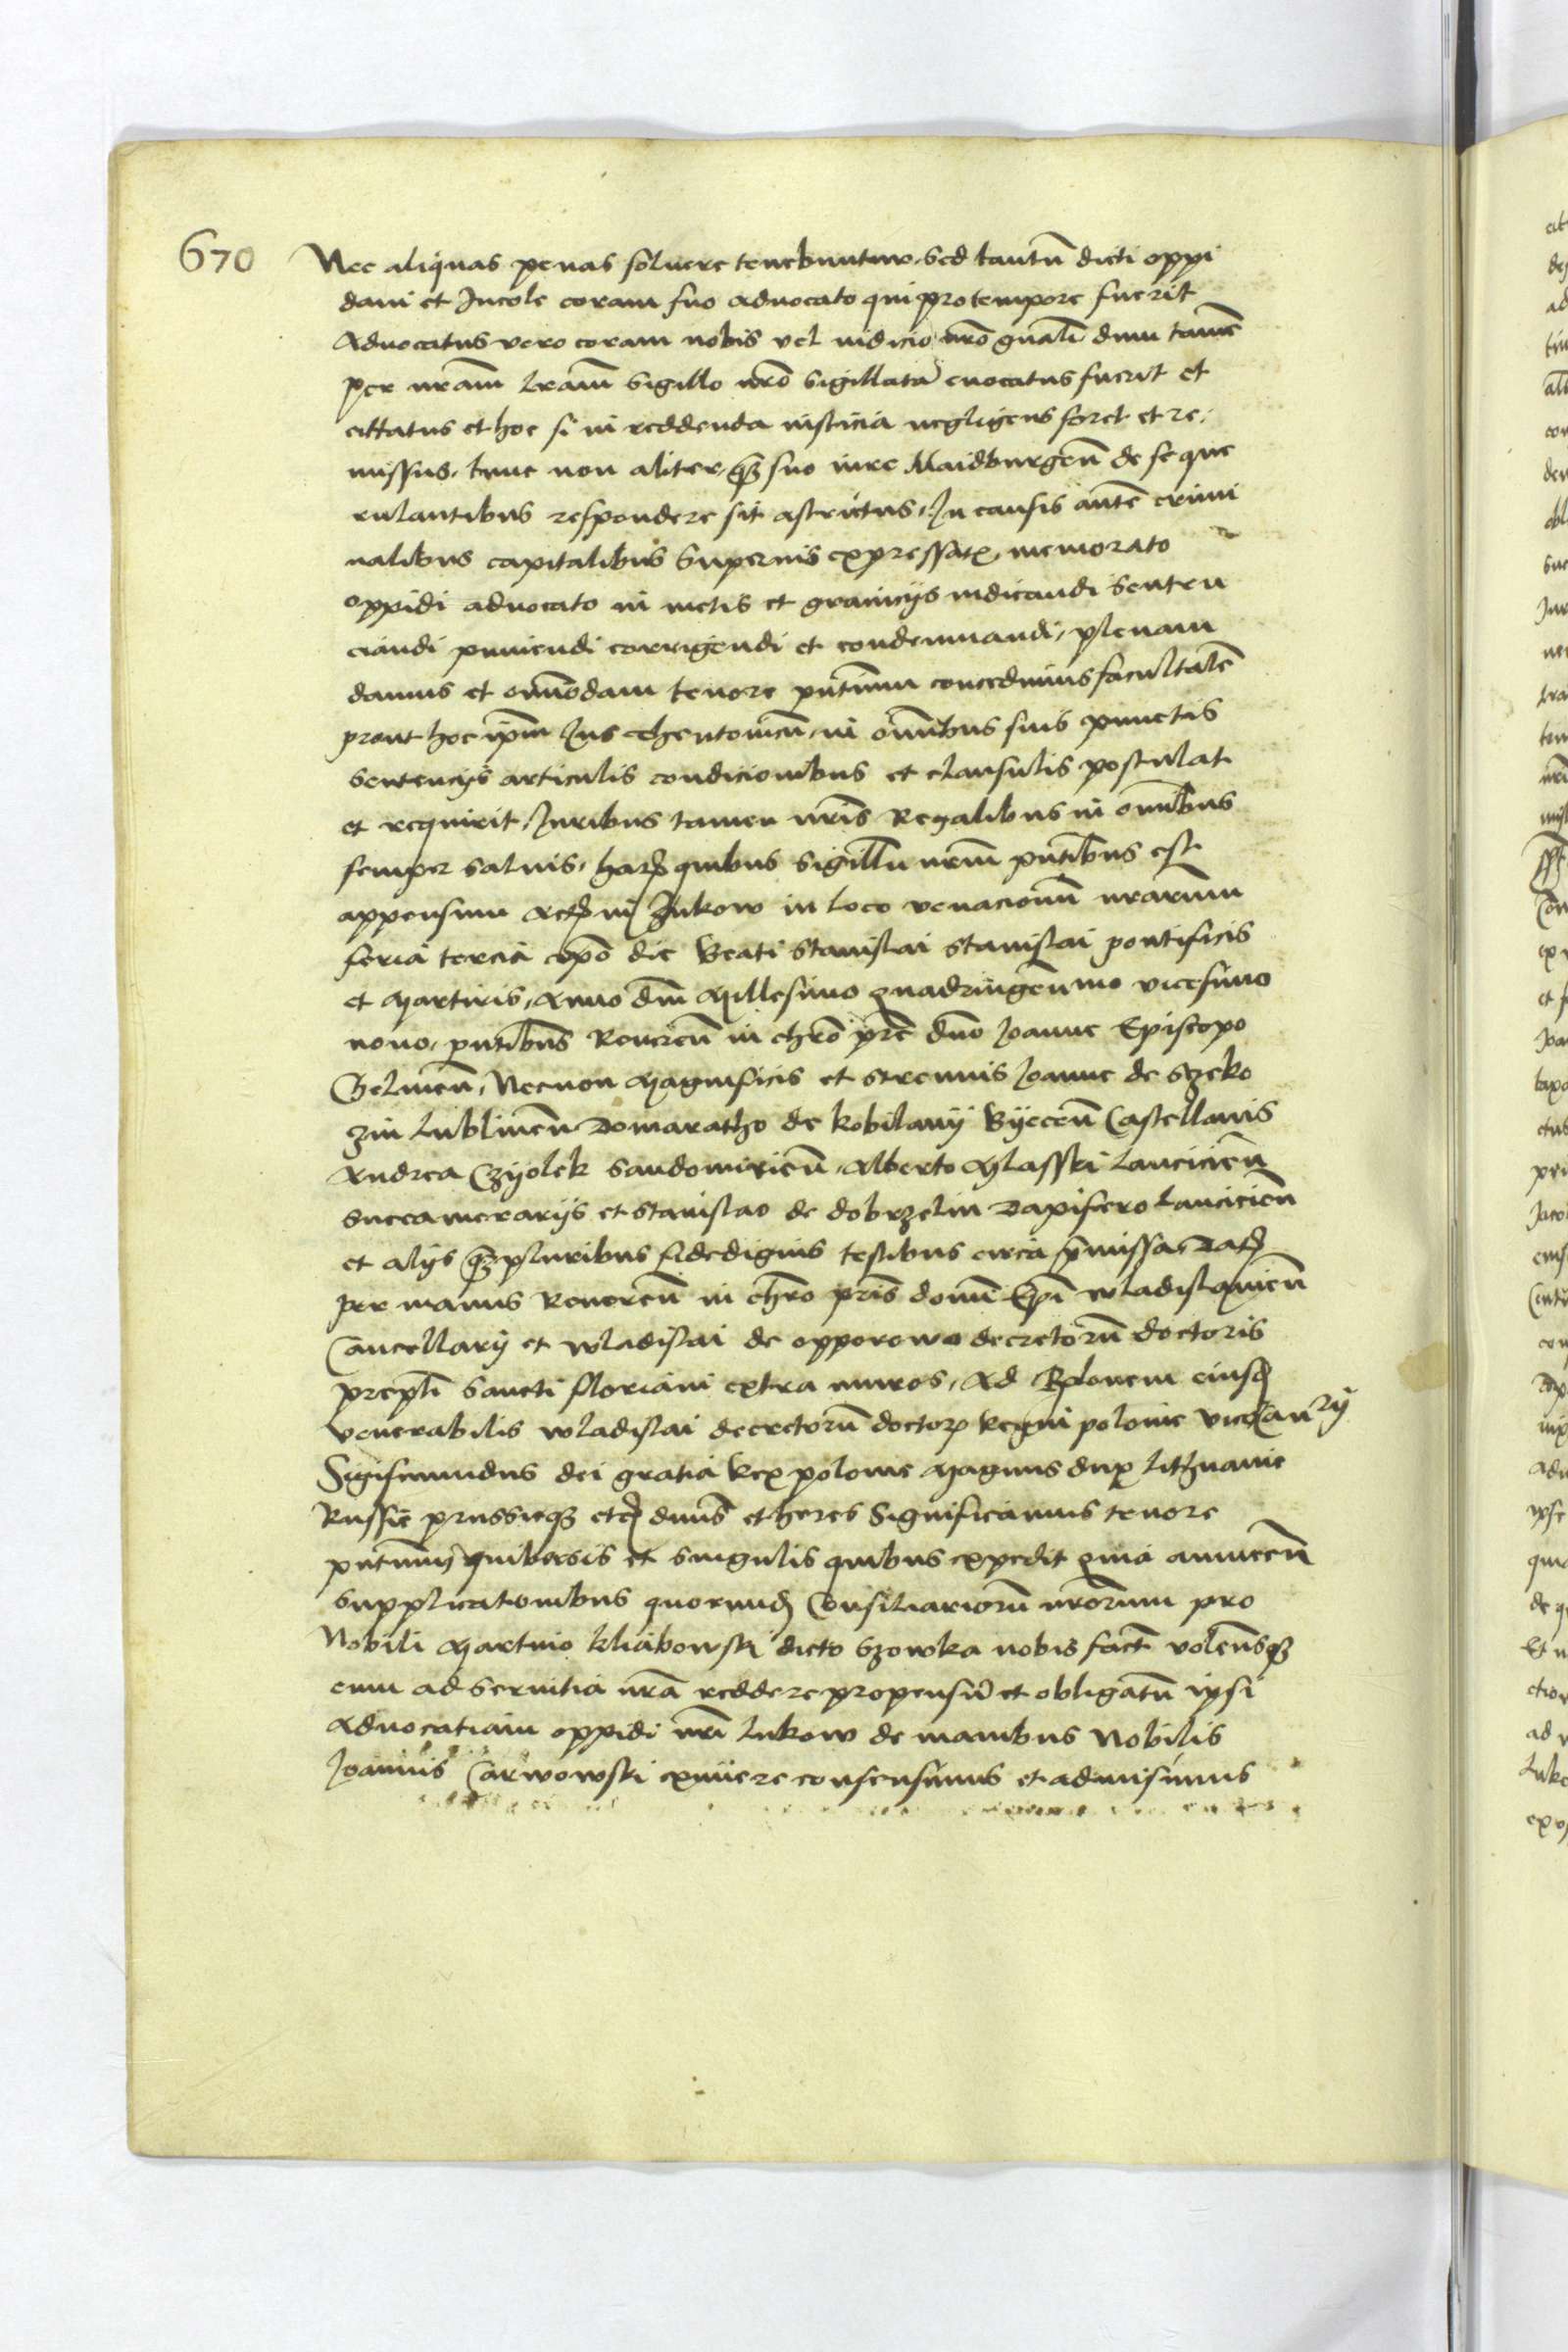 670
Nec aliquas penas soluere tenebuntur, sed tantū dicti oppi
dani et Incole coram suo aduocato qui pro tempore fuerit
Aduocatus vero coram nobis vel iudicio nrō gnali dum tamē
per nram lram sigillo nrō sigillatā euocatus fuerit et
cittatus et hoc si in reddenda iusticia negligens foret et re-
missus, tunc non aliter, qz suo iure Maidburgeñ de se que
rulantibus respondere sit astrictus, In causis autē crimi
nalibus capitalibus superius expressatꝭ, memorato
oppidi aduocato in metis et granicijs iudicandi senten
ciandi puniendi corrigendi et condemnandi, plenam
damus et om̄odam tenore pn̄tium concedimus facultatē
prout hoc ipm̄ Jus Theutonicū, in om̄ibus suis punctis
sentencijs articulis condicionibus et clausulis postulat
et requirit, Juribus tamen nris Regalibus in om̄ibus
semper saluis, harꝫ quibus sigillū nrm̄ pn̄tibus est
appensum Actꝫ in Zukow in loco venacionū nrarum
feria tercia ipō die Beati Stanislai Stanislai pontificis
et Martiris, Anno dni Millesimo quadringen̄mo vicesimo
nono, pn̄tibus Reueren̄ in chrō pr̄e dn̄o Joanne Episcopo
Chelmen̄, Necnon Magnificis et strennis Joanne de Szeko
zin Lublinen̄ Domaratho de Kobilany Byecen̄ Castellanis
Andrea Czyolek Sandomirien̄, Alberto Mlasski Lancicien̄
succamerarijs et Stanislao de Dobrzelin Dapifero Lancicien̄
et alijs qz pluribus fidedignis testibus circa pmissa, Datꝫ
per manus Reueren̄ in chrō pris domi Epi Wladislauien̄
Cancellarij et Wladislai de Opporow decretorū doctoris
prepti Sancti Floriani extra muros, Ad Rlonem eiusdꝫ
venerabilis Wladislai decretorū doctorꝭ Regni polonie vicecanrij
Sigismundus dei gratia Rex polonie Magnus dux Litzuanie
Russie prussieqꝫ etcꝫ dn̄us et heres Significamus tenore
pn̄tium quibersis et singulis quibus expedit quia annuen̄
supplicationibus quorundꝫ Consiliariorū nrōrum pro
Nobili Martino Kliabowski dicto Szowka nobis fact̄ volen̄sqꝫ
eum ad seruitia nra reddere propensiū et obligatū ipsi
Aduocatiam oppidi nri Lukow de manibus Nobilis
Joannis Carwowski eximere consensimus et admisimus